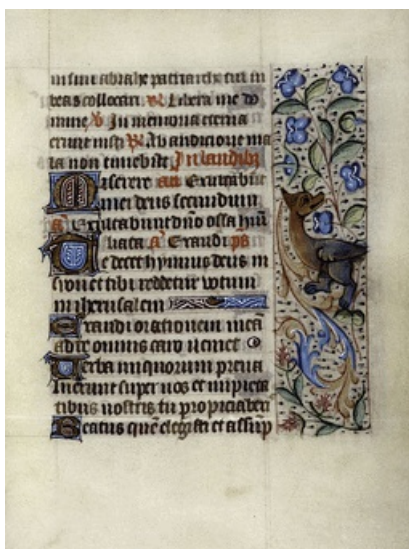 in sinu abrahe patriarche tui in
beas collocari. R Libera me do
mine V In memoria eterna
erunt iusti R Ab audicione ma
la non timebit In laudibz
Miserere an Exultabūt
mei deus secundum
a Exultabunt dno ossa hūi
liata a Exaudi ps
Te decet hymnus deus in
sion et tibi reddetur votum
in iherusalem
Exaudi orationem meā
ad te omnis caro veniet
Verba iniquorum preua
luerunt super nos et impieta
tibus nostris tu propiciaberis
Beatus quē elegisti et assūp